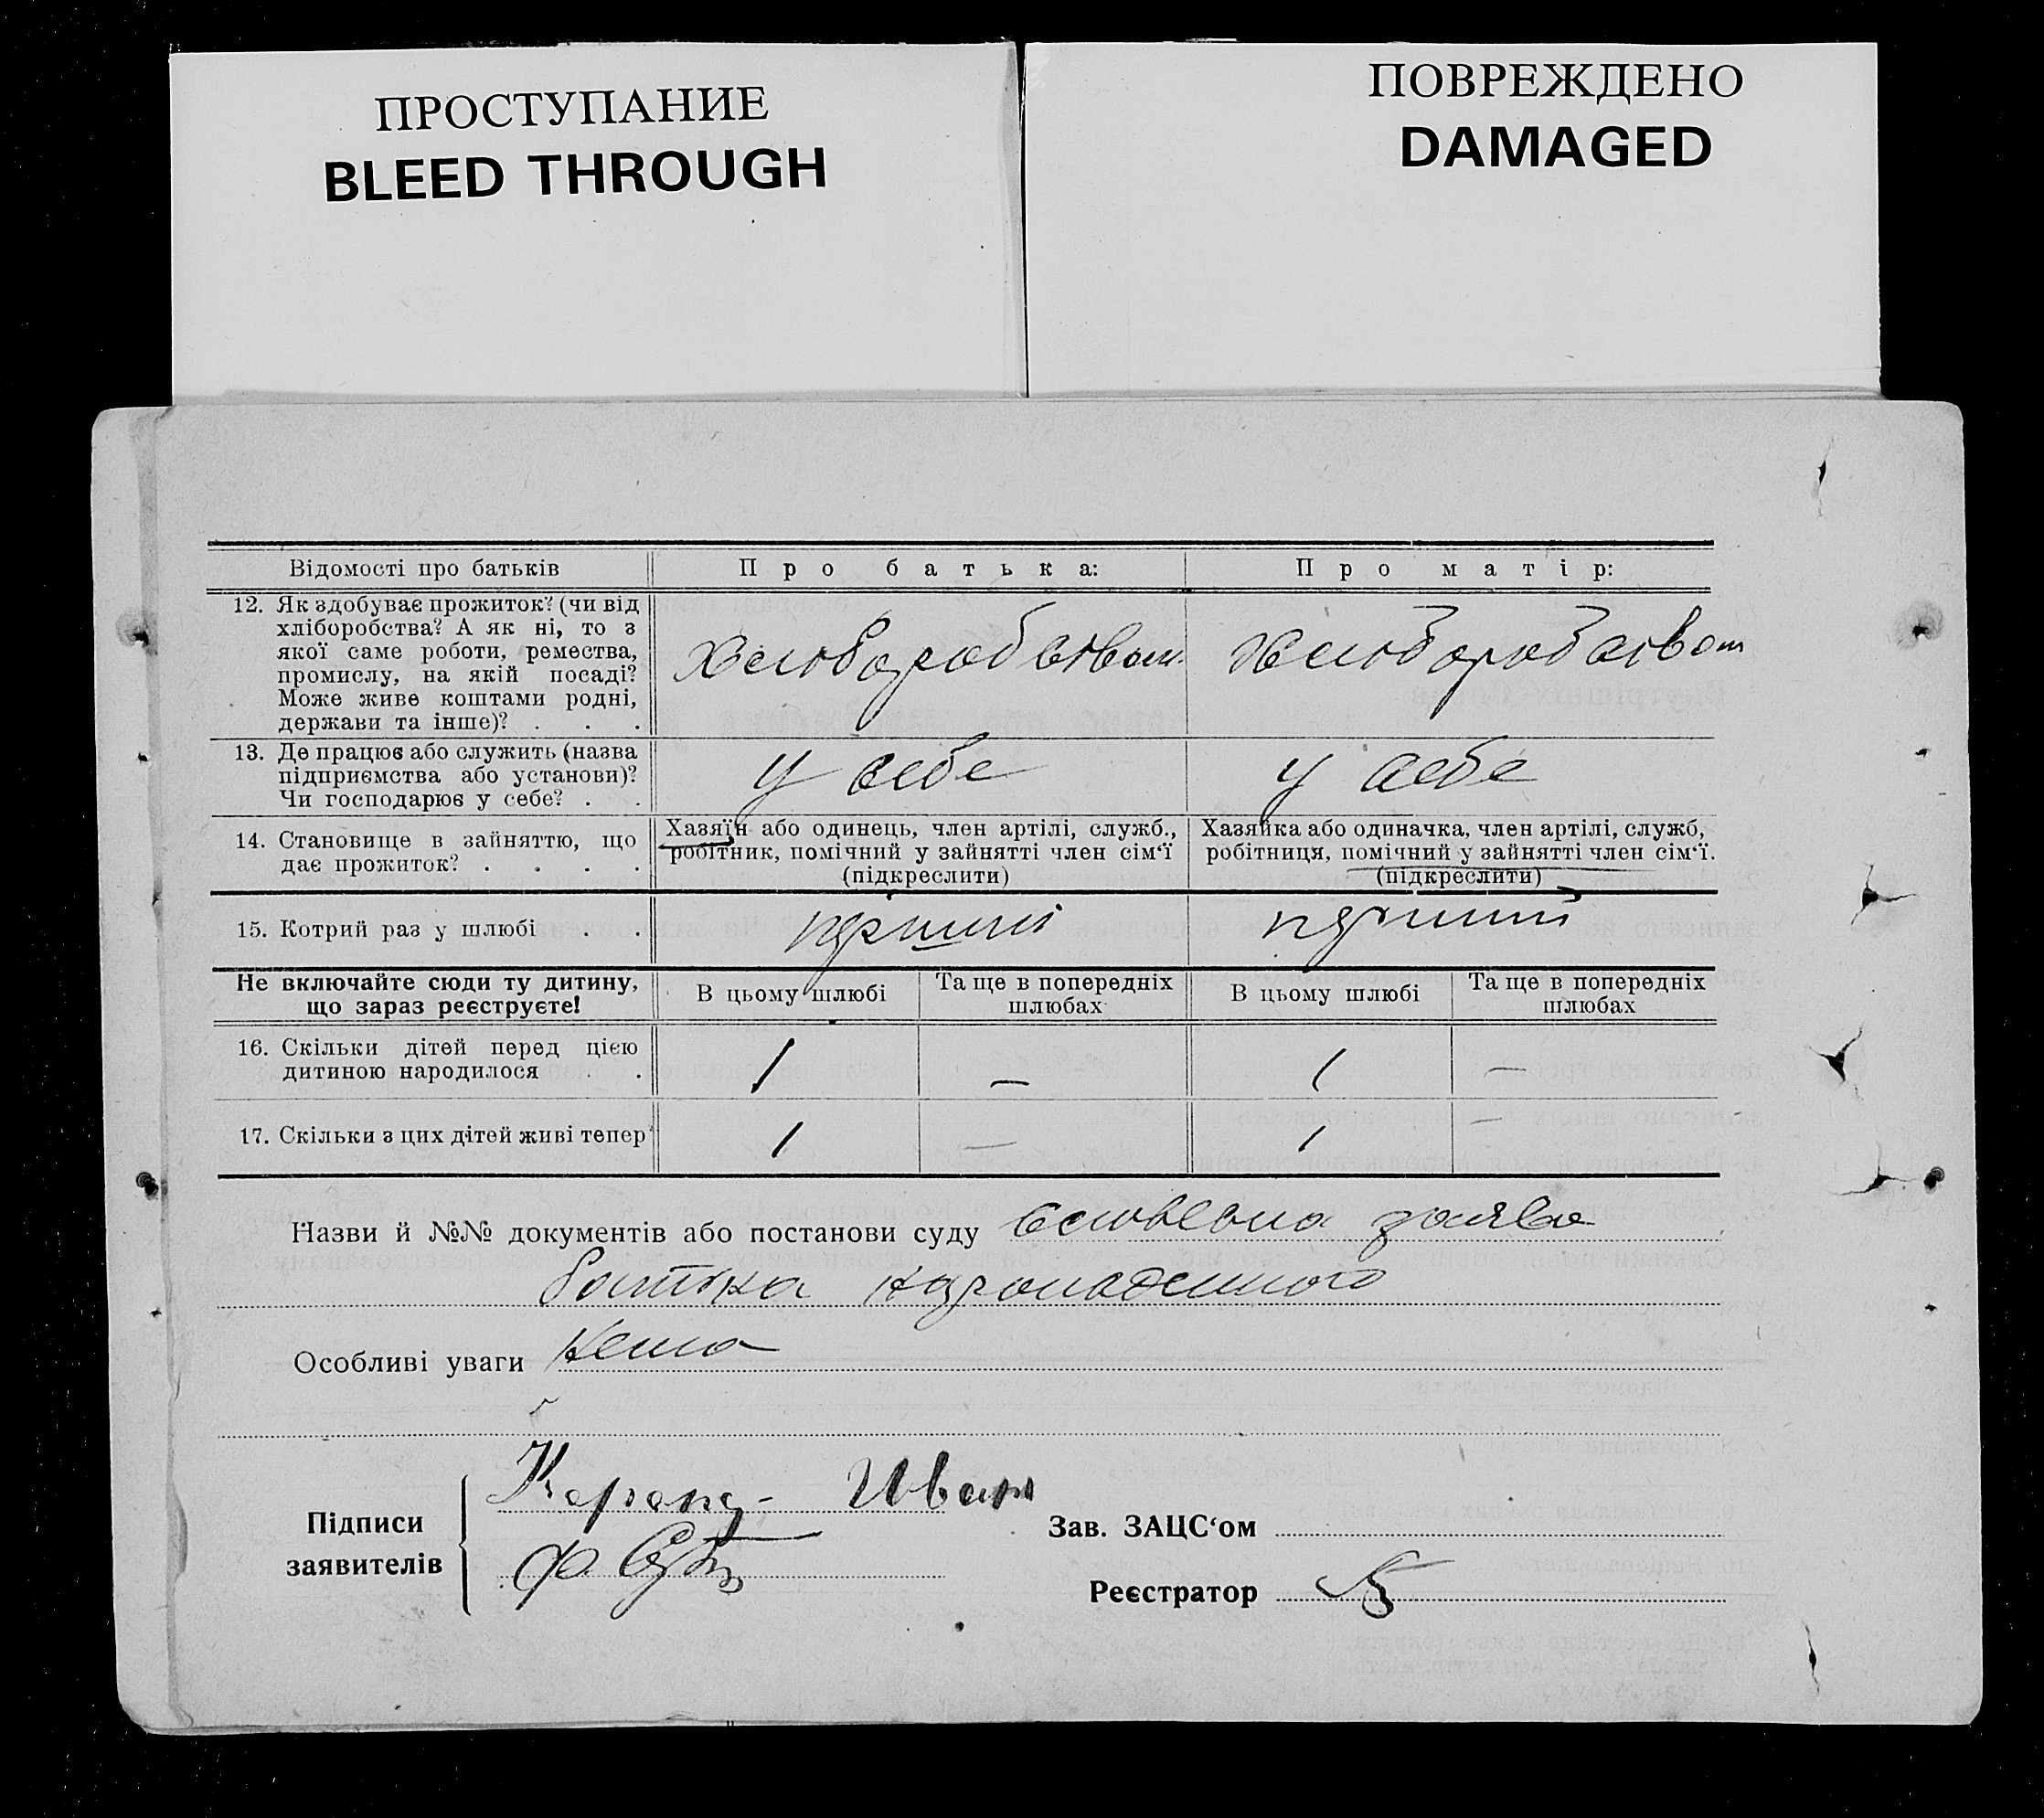 ПРОСТУПАНИЕ
BLEED THROUGH
ПОВРЕЖДЕНО
DAMAGED
Відомості про батьків
Про батька:
Про матір:
12. Як здобуває прожиток? (чи від
хліборобства? А як ні, то з
якої саме роботи, ремества,
промислу, на якій посаді?
Може живе коштами родні,
держави та інше)? . . .
Хлиборобством
Хлиборобством
13. Де працює або служить (назва
підприємства або установи)?
Чи господарює у себе? . .
у себе
у себе
14. Становище в зайняттю, що
дає прожиток? . . . .
Хазяїн або одинець, член артілі, служб.,
робітник, помічний у зайнятті член сім‘ї
(підкреслити)
Хазяйка або одиначка, член артілі, служб,
робітниця, помічний у зайнятті член сім‘ї.
(підкреслити)
15. Котрий раз у шлюбі . .
перший
перший
Не включайте сюди ту дитину,
що зараз реєструєте!
В цьому шлюбі
Та ще в попередніх
шлюбах
В цьому шлюбі
Та ще в попередніх
шлюбах
16. Скільки дітей перед цією
дитиною народилося .
1
—
1
—
17. Скільки з цих дітей живі тепер
1
—
1
—
Назви й №№ документів або постанови суду словесна заява
батька народженного
Особливі уваги нема
Підписи
заявителів
Иван
Зав. ЗАЦС‘ом
Реєстратор